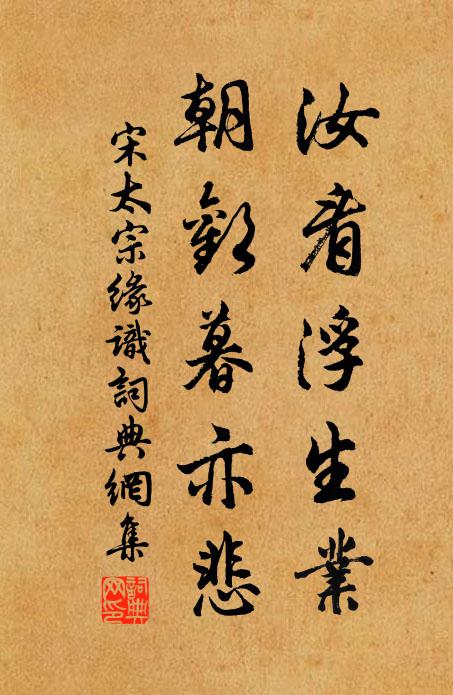 汝看浮生業
朝歡暮亦悲
宋太宗緣識詞典網集
詞典网印